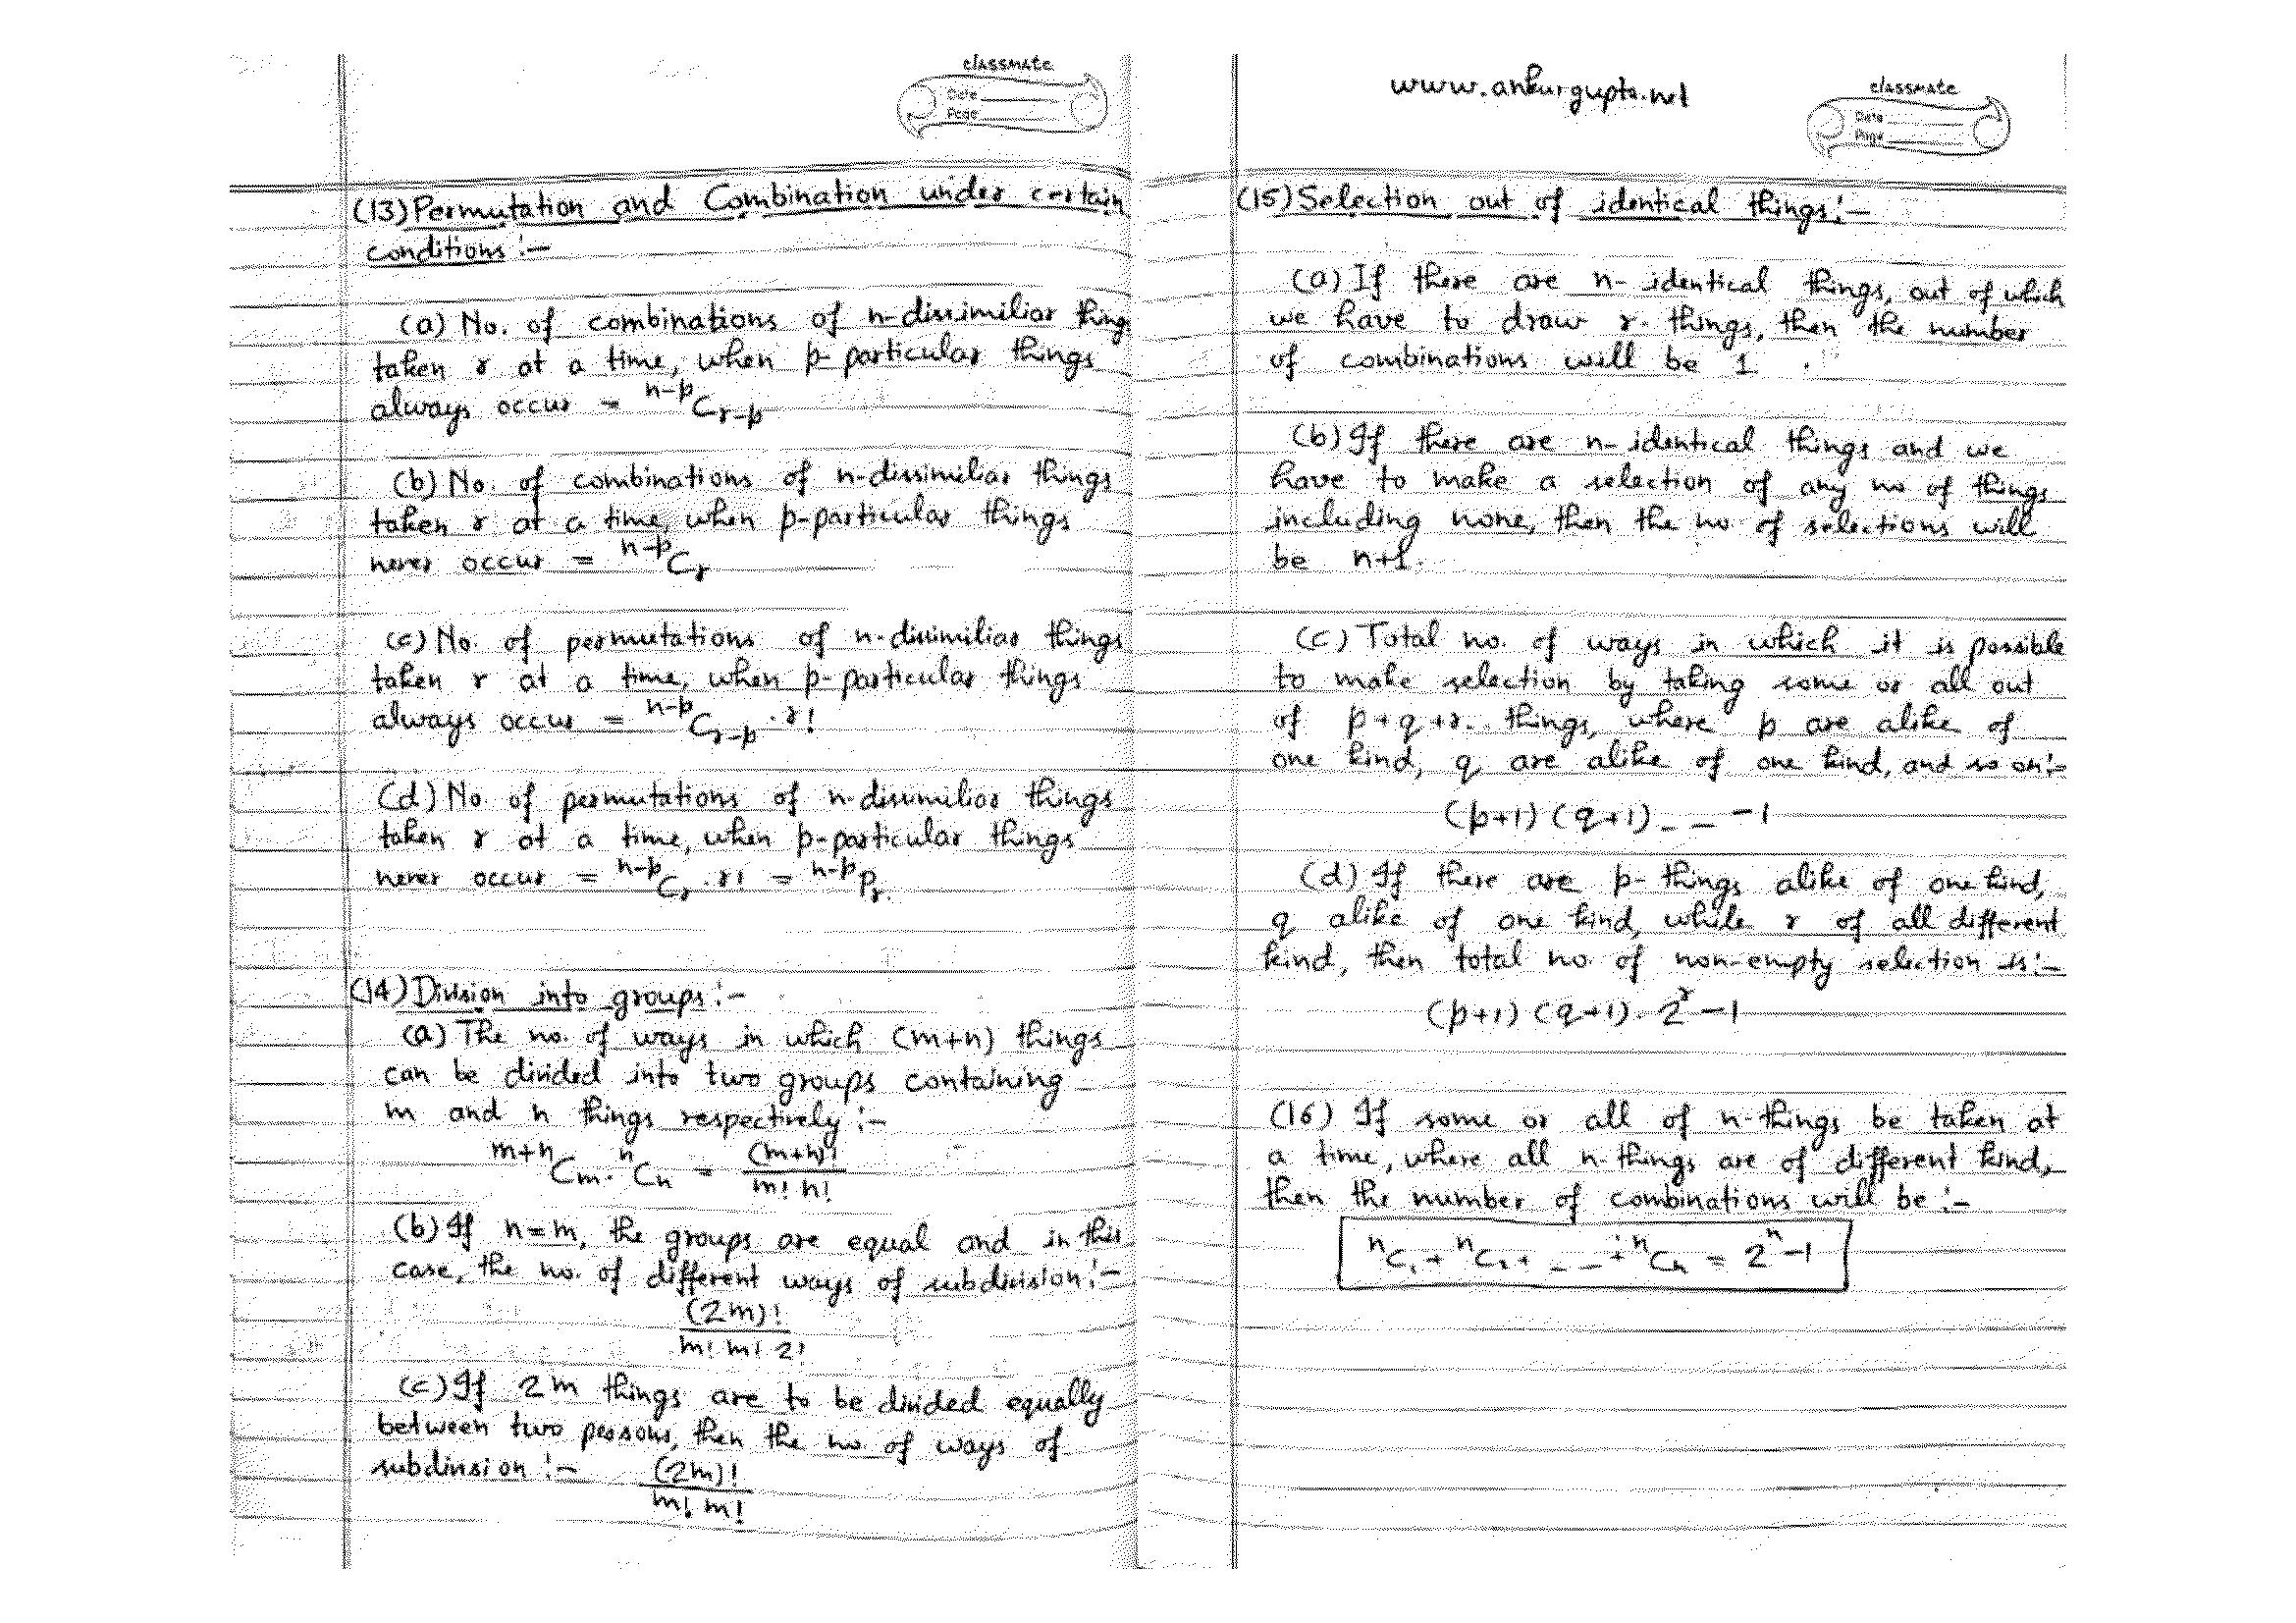 classmate
Date
Page
(13) Permutation and Combination under certain
conditions :-
(a) No. of combinations of n-dissimiliar things
taken r at a time, when p-particular things
always occur = ⁿ⁻ᵖCᵣ₋ₚ
(b) No. of combinations of n-dissimiliar things
taken r at a time, when p-particular things
never occur = ⁿ⁻ᵖCᵣ
(c) No. of permutations of n-dissimiliar things
taken r at a time, when p-particular things
always occur = ⁿ⁻ᵖCᵣ₋ₚ · r!
(d) No of permutations of n-dissimiliar things
taken r at a time, when p-particular things
never occur = ⁿ⁻ᵖCᵣ · r! = ⁿ⁻ᵖPᵣ.
(14) Division into groups :-
(a) The no. of ways in which (m+n) things
can be divided into two groups containing
m and n things respectively :-
ᵐ⁺ⁿCₘ · ⁿCₙ = (m+n)! / m! n!
(b) If n=m, the groups are equal and in this
case, the no. of different ways of subdivision :-
(2m)! / m! m! 2!
(c) If 2m things are to be divided equally
between two persons, then the no of ways of
subdivision :- (2m)! / m! m!
www.ankurgupta.net
classmate
Date
Page
(15) Selection out of identical things :-
(a) If there are n-identical things, out of which
we have to draw r-things, then the number
of combinations will be 1.
(b) If there are n-identical things and we
have to make a selection of any no of things
including none, then the no of selections will
be n+1.
(c) Total no. of ways in which it is possible
to make selection by taking some or all out
of p+q+r.. things, where p are alike of
one kind, q are alike of one kind, and so on :-
(p+1) (q+1) _ _ -1
(d) If there are p-things alike of one kind,
q alike of one kind, while r of all different
kind, then total no of non-empty selection is :-
(p+1) (q+1) · 2ʳ -1
(16) If some or all of n-things be taken at
a time, where all n-things are of different kind,
then the number of combinations will be :-
ⁿC₁ + ⁿC₂ + _ _ + ⁿCₙ = 2ⁿ -1